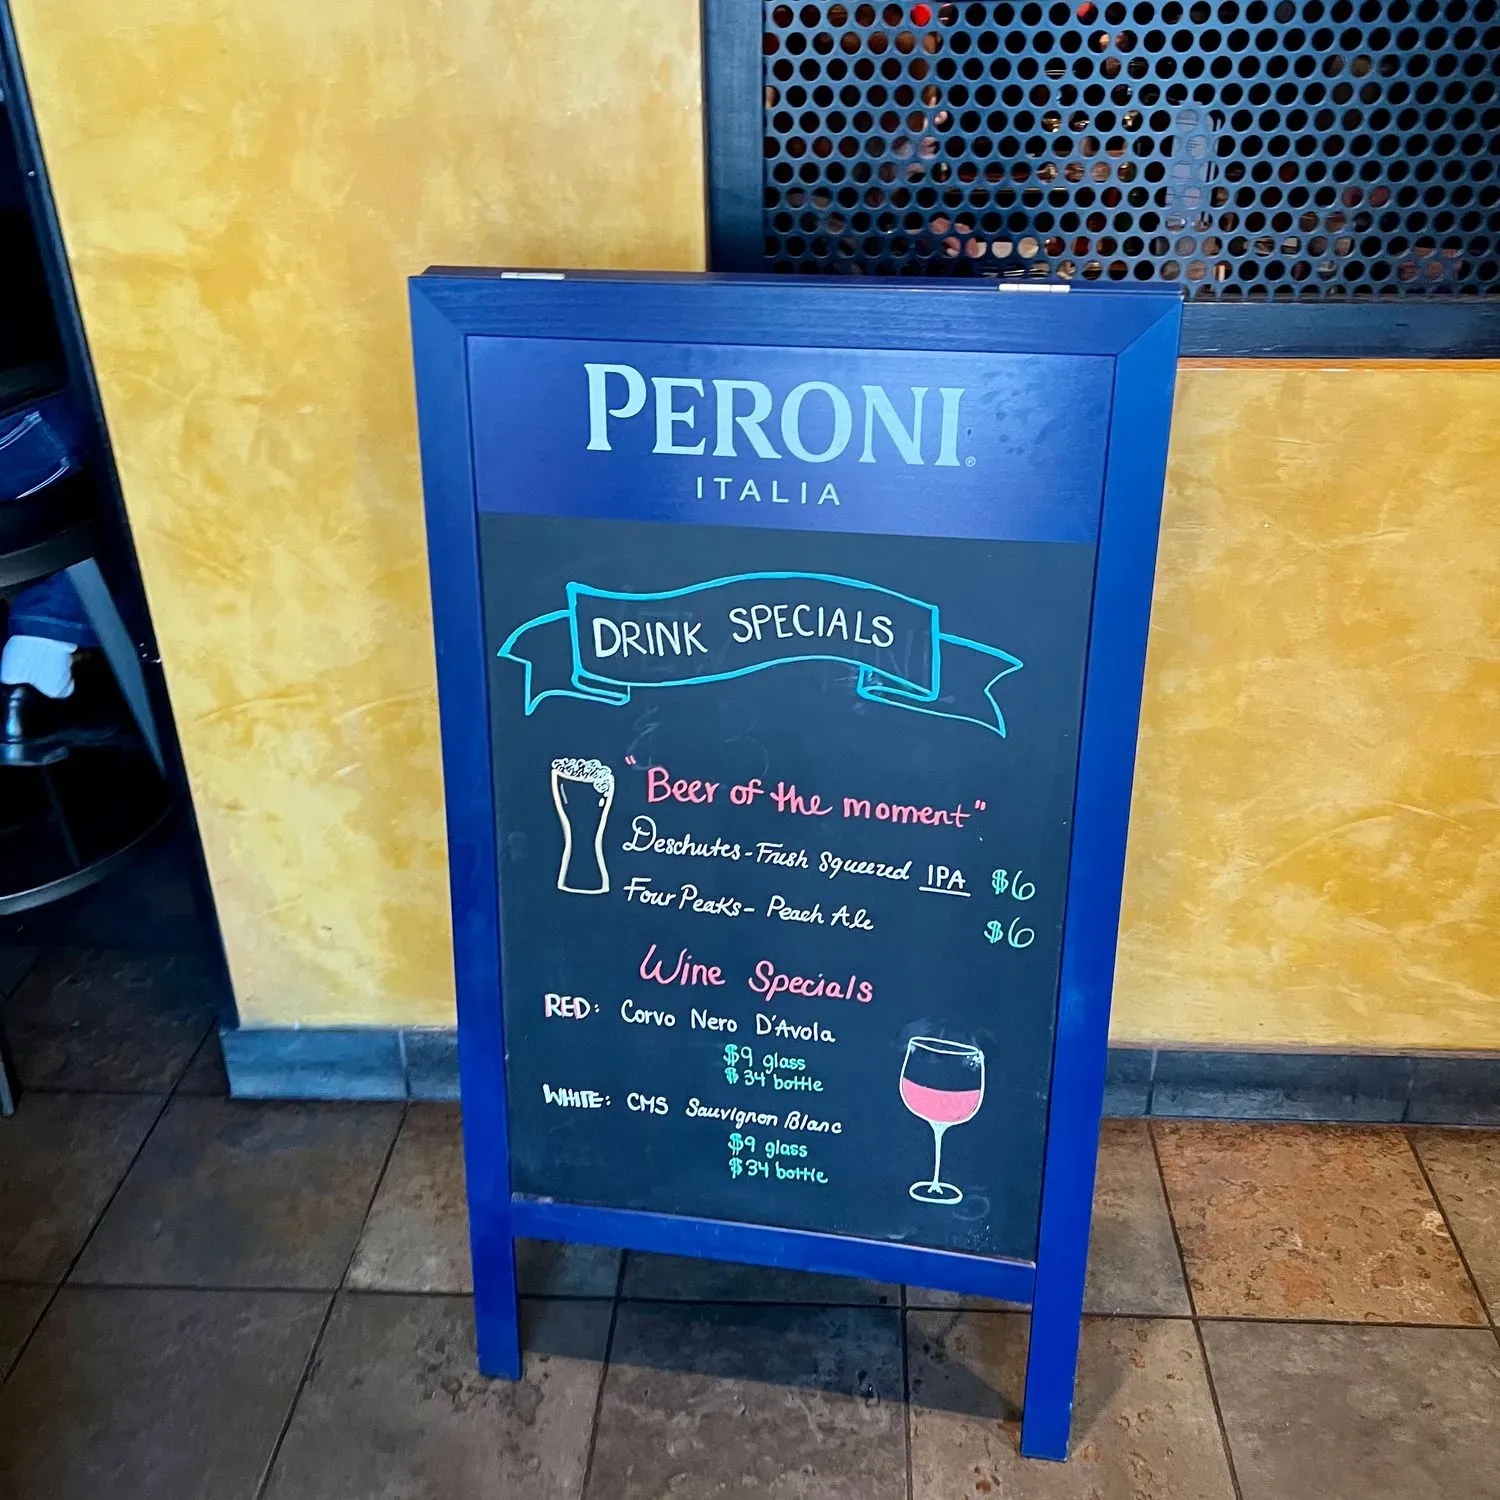 PERONI®
ITALIA
DRINK SPECIALS
"Beer of the moment"
Deschutes-Fresh Squeezed IPA $6
Four Peaks- Peach Ale $6
Wine Specials
RED: Corvo Nero D'Avola
$9 glass
$34 bottle
WHITE: CMS Sauvignon Blanc
$9 glass
$34 bottle